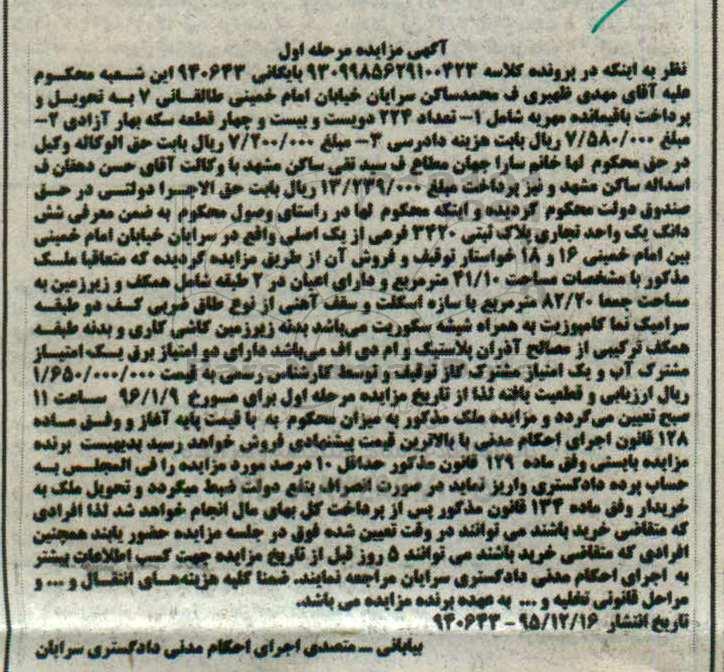 آگهی مزایده مرحله اول
نظر به اینکه در پرونده کلاسه ۹۳۰۹۹۸۵۶۲۹۱۰۰۴۲۳ بایگانی ۹۴۰۶۴۳ این شعبه محکوم
علیه آقای مهدی ظهیری ف محمدساکن سرایان خیابان امام خمینی طالقانی ۷ به تحویل و
پرداخت باقیمانده مهریه شامل ۱- تعداد ۲۲۴ دویست و بیست و چهار قطعه سکه بهار آزادی ۲-
مبلغ ۷/۵۸۰/۰۰۰ ریال بابت هزینه دادرسی ۳- مبلغ ۷/۲۰۰/۰۰۰ ریال بابت حق الوکاله وکیل
در حق محکوم لها خانم سارا جهان مطاع ف سید تقی ساکن مشهد با وکالت آقای حسن دهقان ف
اسداله ساکن مشهد و نیز پرداخت مبلغ ۱۳/۲۳۹/۰۰۰ ریال بابت حق الاجرا دولتی در حق
صندوق دولت محکوم گردیده و اینکه محکوم لها در راستای وصول محکوم به ضمن معرفی شش
دانگ یک واحد تجاری پلاک ثبتی ۳۴۲۰ فرعی از یک اصلی واقع در سرایان خیابان امام خمینی
بین امام خمینی ۱۶ و ۱۸ خواستار توقیف و فروش آن از طریق مزایده گردیده که متعاقبا ملک
مذکور با مشخصات مساحت ۴۱/۱۰ مترمربع و دارای اعیان در ۲ طبقه شامل همکف و زیرزمین به
مساحت جمعا ۸۲/۲۰ مترمربع با سازه اسکلت و سقف آهنی از نوع طاق ضربی کف دو طبقه
سرامیک نما کامپوزیت به همراه شیشه سکوریت می‌باشد بدنه زیرزمین کاشی کاری و بدنه طبقه
همکف ترکیبی از مصالح آذران پلاستیک و ام دی اف می‌باشد دارای دو امتیاز برق یک امتیاز
مشترک آب و یک امتیاز مشترک گاز توقیف و توسط کارشناس رسمی به قیمت ۱/۶۵۰/۰۰۰/۰۰۰
ریال ارزیابی و قطعیت یافته لذا از تاریخ مزایده مرحله اول برای مورخ ۹۶/۱/۹ ساعت ۱۱
صبح تعیین می‌گردد و مزایده ملک مذکور به میزان محکوم به با قیمت پایه آغاز و وفق ماده
۱۲۸ قانون اجرای احکام مدنی با بالاترین قیمت پیشنهادی فروش خواهد رسید بدیهیست برنده
مزایده بایستی وفق ماده ۱۲۹ قانون مذکور حداقل ۱۰ درصد مورد مزایده را فی المجلس به
حساب پرده دادگستری واریز نماید در صورت انصراف بنفع دولت ضبط میگردد و تحویل ملک به
خریدار وفق ماده ۱۳۴ قانون مذکور پس از پرداخت کل بهای مال انجام خواهد شد لذا افرادی
که متقاضی خرید باشند می توانند در وقت تعیین شده فوق در جلسه مزایده حضور یابند همچنین
افرادی که متقاضی خرید باشند می توانند ۵ روز قبل از تاریخ مزایده جهت کسب اطلاعات بیشتر
به اجرای احکام مدنی دادگستری سرایان مراجعه نمایند. ضمنا کلیه هزینه‌های انتقال و ... و
مراحل قانونی تخلیه و ... به عهده برنده مزایده می باشد.
تاریخ انتشار ۹۵/۱۲/۱۶ - ۹۴۰۶۴۳
بیابانی - متصدی اجرای احکام مدنی دادگستری سرایان